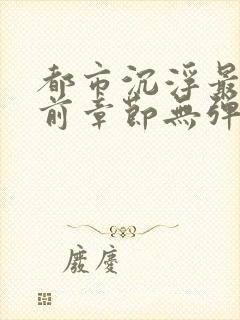 都市沉浮最
前章節無彈
廢慶